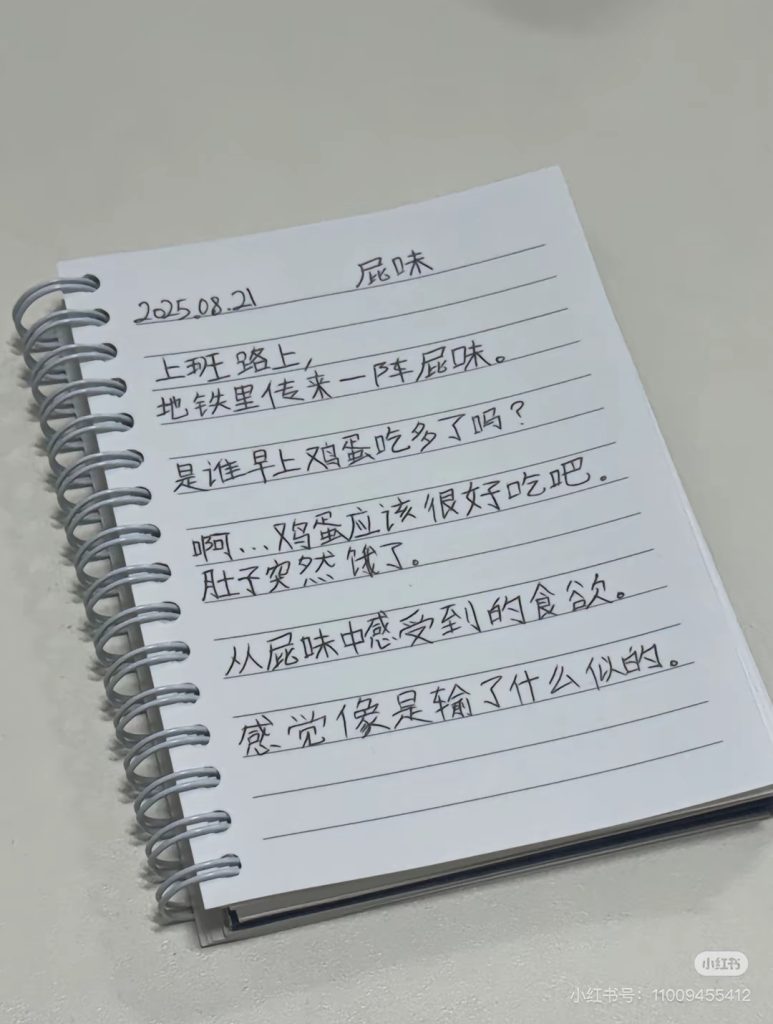 2025.08.21 屁味
上班路上,
地铁里传来一阵屁味。
是谁早上鸡蛋吃多了吗?
啊...鸡蛋应该很好吃吧。
肚子突然饿了。
从屁味中感受到的食欲。
感觉像是输了什么似的。
小红书
小红书号：11009455412